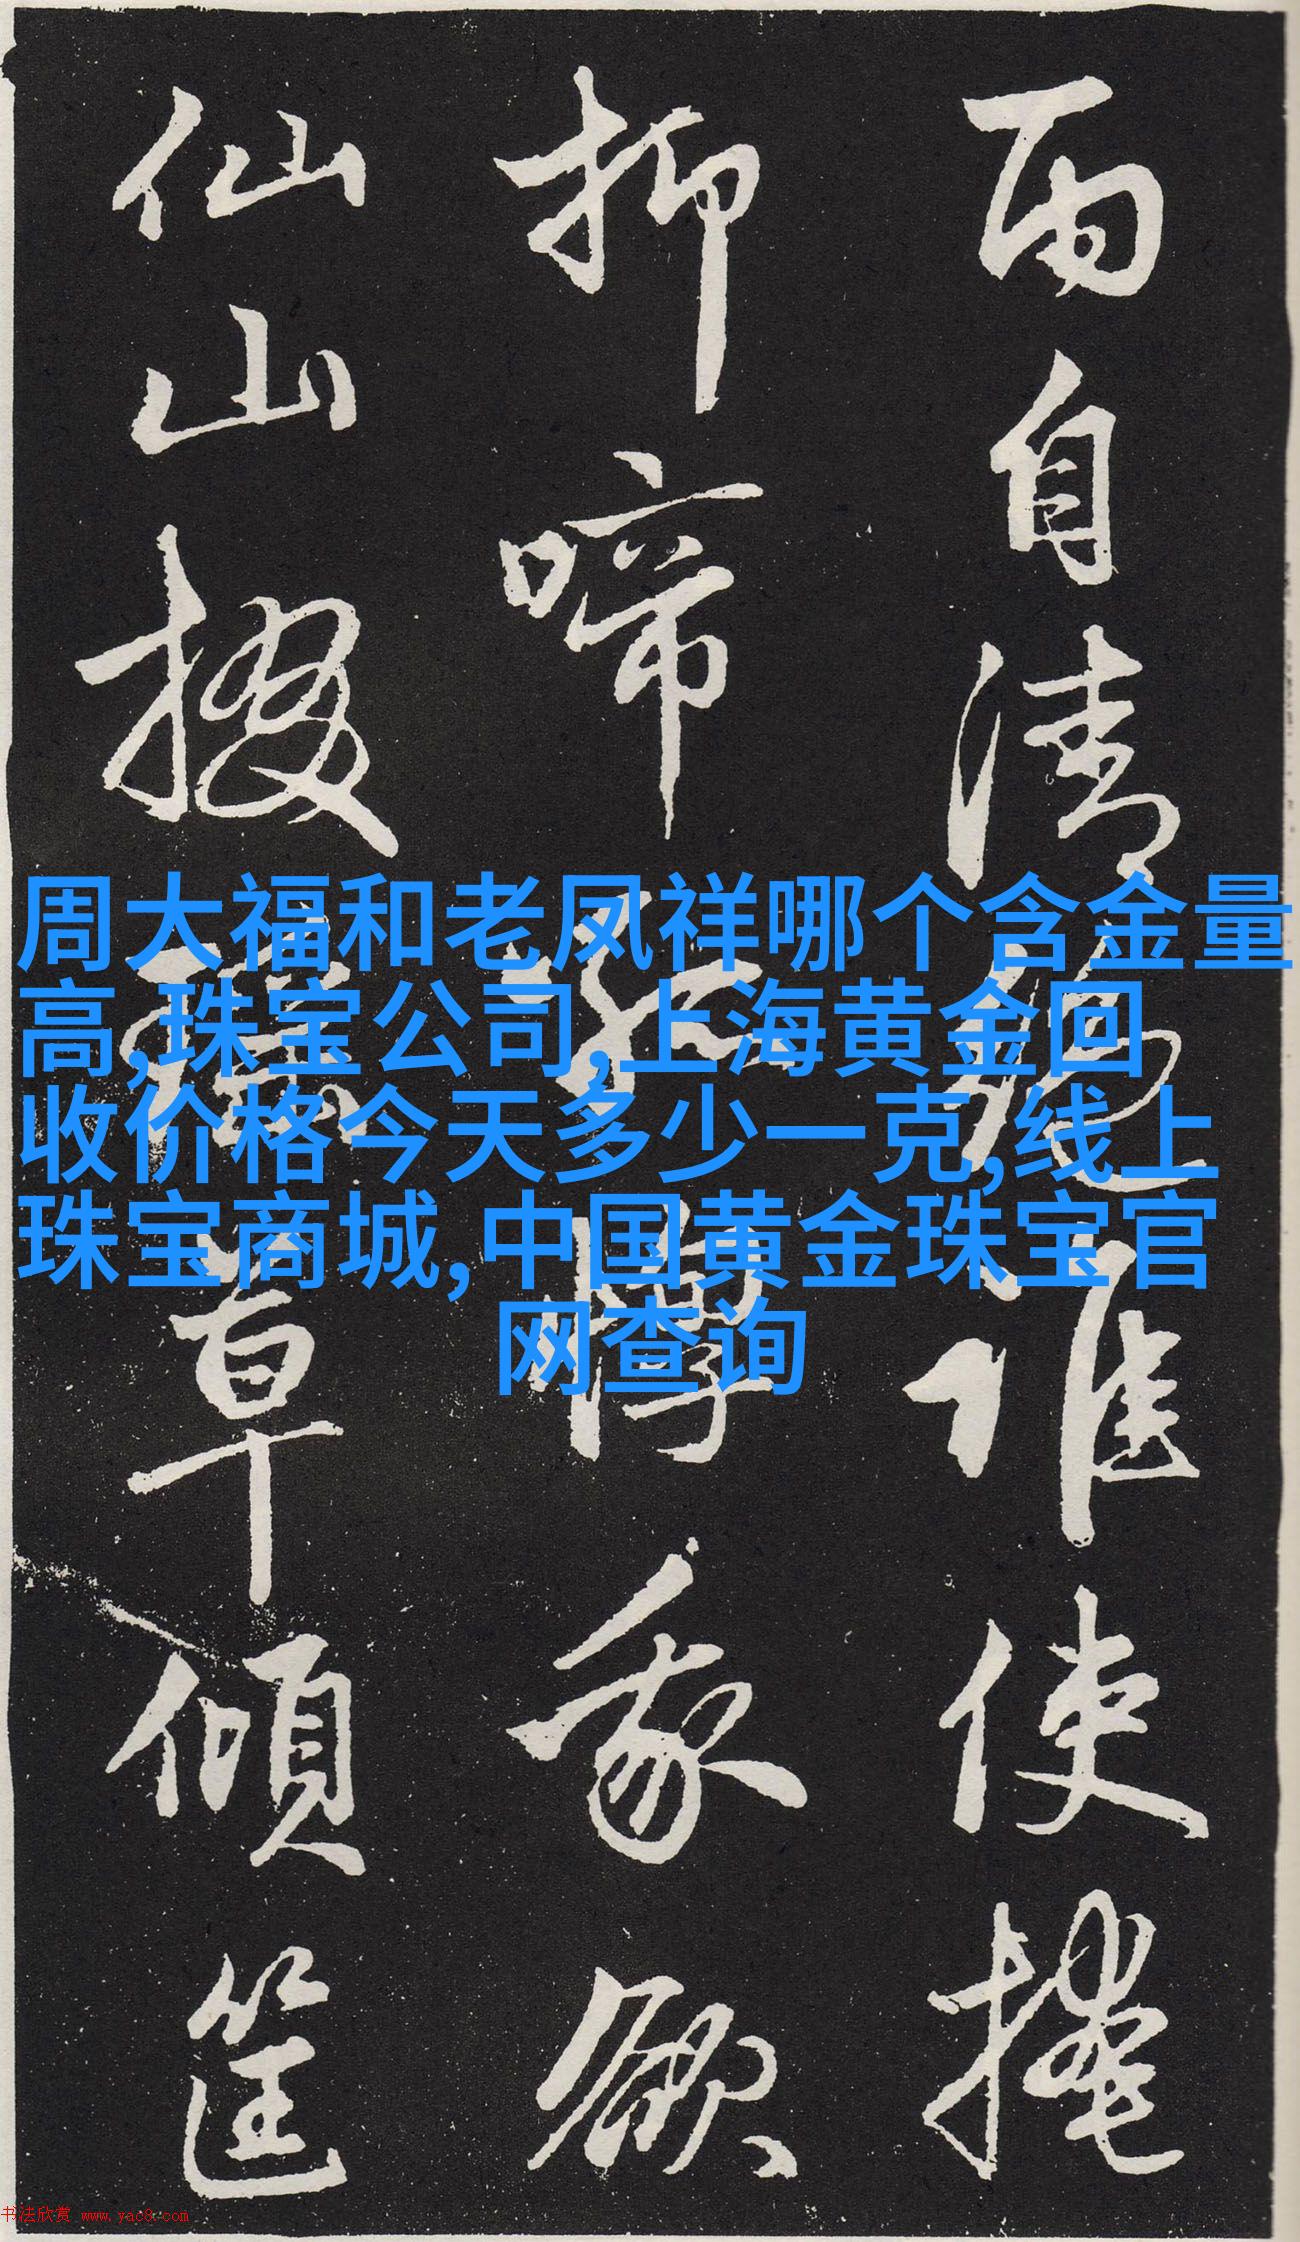 雨自清誰使掩
抑啼我欲
仙山掇瑤草傾筐
周大福和老凤祥哪个含金量
高,珠宝公司,上海黄金回
收价格今天多少一克,线上
珠宝商城,中国黄金珠宝官
网查询
书法欣赏 www.yac8.com